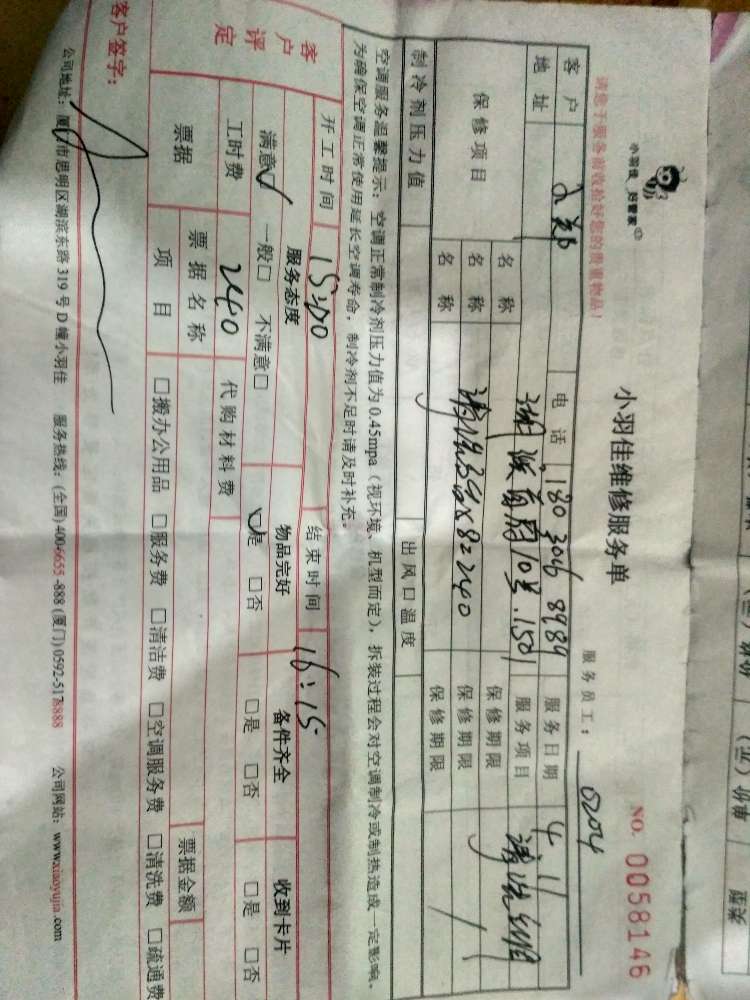 小羽佳 好管家
小羽佳维修服务单
NO. 0058146
请您于服务前收拾好您的贵重物品!
服务员工: 0204
客户 电话 180 3046 8989 服务日期 4 11
地址 10号.1501 服务项目 清洗
保修项目 名称 保修期限
名称 清洗 x8=240 保修期限
名称 保修期限
制冷剂压力值 出风口温度
空调服务温馨提示: 空调正常制冷剂压力值为 0.45mpa (视环境、机型而定), 拆装过程会对空调制冷或制热造成一定影响,
为确保空调正常使用延长空调寿命, 制冷剂不足时请及时补充。
开工时间 15:00 结束时间 16:15
客户评定 服务态度 物品完好 备件齐全 收到卡片
满意☑ 一般□ 不满意□ ☑是 □否 □是 □否 □是 □否
工时费 240 代购材料费
票据 票据名称 票据金额
项目 □搬办公用品 □服务费 □清洁费 □空调服务费 □清洗费 □疏通费
客户签字:
公司地址: 厦门市思明区湖滨东路 319 号 D 幢小羽佳 服务热线: (全国) 400-6655-888 (厦门) 0592-5178888 公司网站: www.xiaoyujia.com